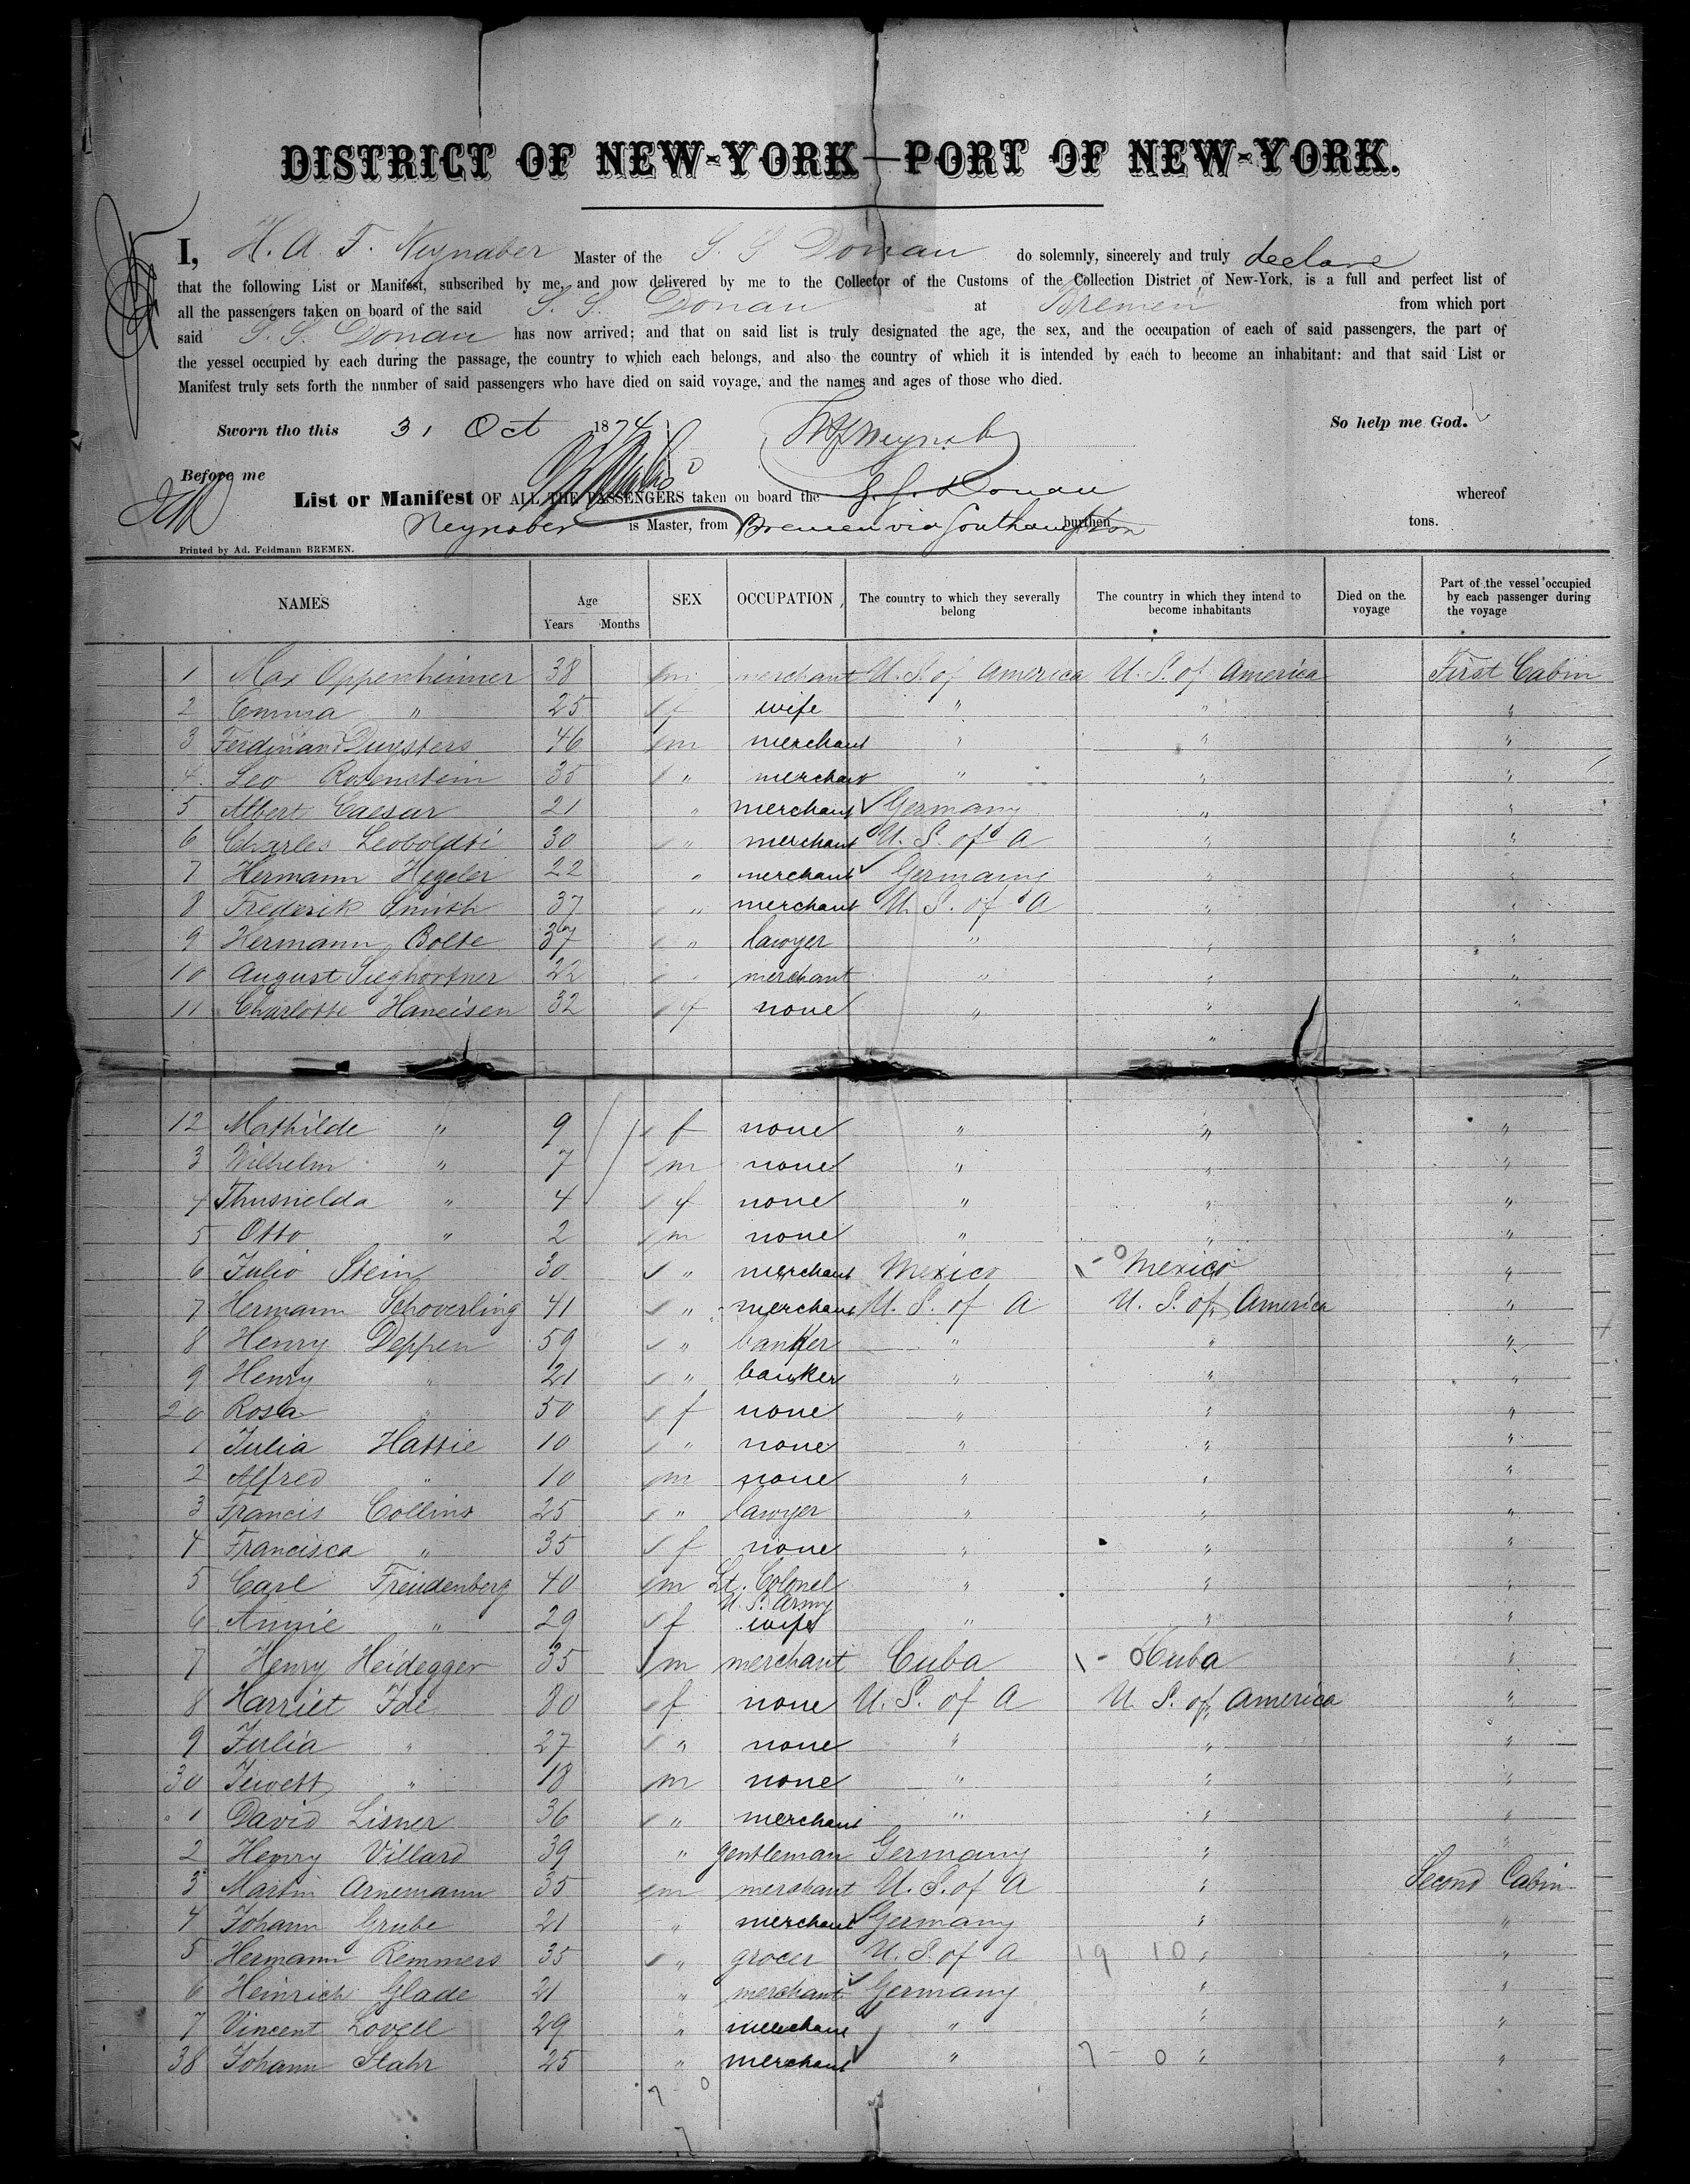 DISTRICT OF NEW-YORK—PORT OF NEW-YORK.
I, H. A. F. Neynaber Master of the S. S Donau do solemnly, sincerely and truly declare
that the following List or Manifest, subscribed by me, and now delivered by me to the Collector of the Customs of the Collection District of New-York, is a full and perfect list of
all the passengers taken on board of the said S. S. Donau at Bremen from which port
said S. S. Donau has now arrived; and that on said list is truly designated the age, the sex, and the occupation of each of said passengers, the part of
the vessel occupied by each during the passage, the country to which each belongs, and also the country of which it is intended by each to become an inhabitant: and that said List or
Manifest truly sets forth the number of said passengers who have died on said voyage, and the names and ages of those who died.
Sworn tho this 31 Oct 1874 So help me God.
Before me
List or Manifest OF ALL THE PASSENGERS taken on board the S. S. Donau whereof
Neynaber is Master, from Bremen via Southampton burthen tons.
Printed by Ad. Feldmann BREMEN.
NAMES Age Years Months SEX OCCUPATION The country to which they severally belong The country in which they intend to become inhabitants Died on the voyage Part of the vessel occupied by each passenger during the voyage
1 Max Oppenheimer 38 m merchant U. S. of America U. S. of America First Cabin
2 Emma " 25 f wife " " "
3 Ferdinan Duysters 46 m merchant " " "
4 Leo Rosenstein 35 " merchant " " "
5 Albert Caesar 21 " merchant Germany " "
6 Charles Leoboldti 30 " merchant U. S. of A " "
7 Hermann Hegeler 22 " merchant Germany " "
8 Frederik Smith 37 " merchant U. S. of A " "
9 Hermann Bolte 37 " lawyer " " "
10 August Sieghortner 22 " merchant " " "
11 Charlotte Haneisen 32 f none " " "
12 Mathilde " 9 f none " " "
3 Wilhelm " 7 m none " " "
4 Thusnelda " 4 f none " " "
5 Otto " 2 m none " " "
6 Julio Stein 30 " merchant Mexico Mexico "
7 Hermann Schoverling 41 " merchant U. S. of A U. S. of America "
8 Henry Deppen 59 " banker " " "
9 Henry " 21 " banker " " "
20 Rosa " 50 f none " " "
1 Julia Hattie 10 " none " " "
2 Alfred " 10 m none " " "
3 Francis Collins 25 " lawyer " " "
4 Francisca " 35 f none " " "
5 Carl Freudenberg 40 m Lt. Colonel U. S. Army " " "
6 Annie " 29 f wife " " "
7 Henry Heidegger 35 m merchant Cuba Cuba "
8 Harriet Ide 80 f none U. S. of A U. S. of America "
9 Julia " 27 " none " " "
30 Jewett " 18 m none " " "
1 David Lisner 36 " merchant " " "
2 Henry Villard 39 " gentleman Germany " "
3 Martin Arnemann 35 m merchant U. S. of A " Second Cabin
4 Johann Grube 21 " merchant Germany " "
5 Hermann Remmers 35 " grocer U. S. of A 19 10 " "
6 Heinrich Glade 21 " merchant Germany " "
7 Vincent Lovell 29 " merchant " " "
38 Johann Stahr 25 " merchant " 7 - 0 " "
7 0